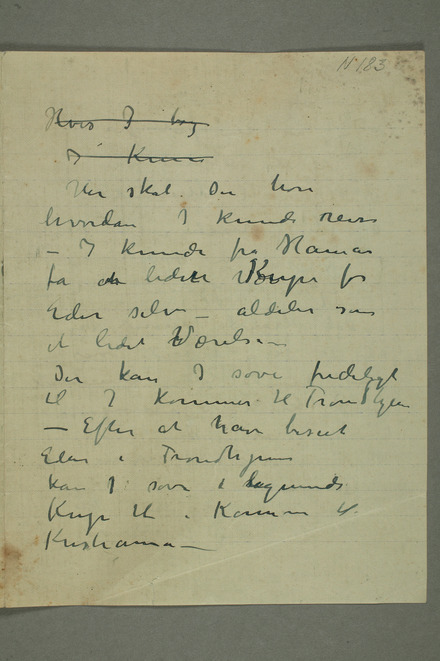 N 123
Hvis I tog
I Kun
Her skal Du høre
hvordan I kunde reise
– I kunde fra Hamar
få et lidet Kupe for
Eder selv – aldeles som
et lidet Værelse –
Der kan I sove fredeligt
til I kommer til Trondhjem
– Efter at have beseet
Elen i Trondhjem
kan I sove i
Kupe til I Kommer til
Kristiania –